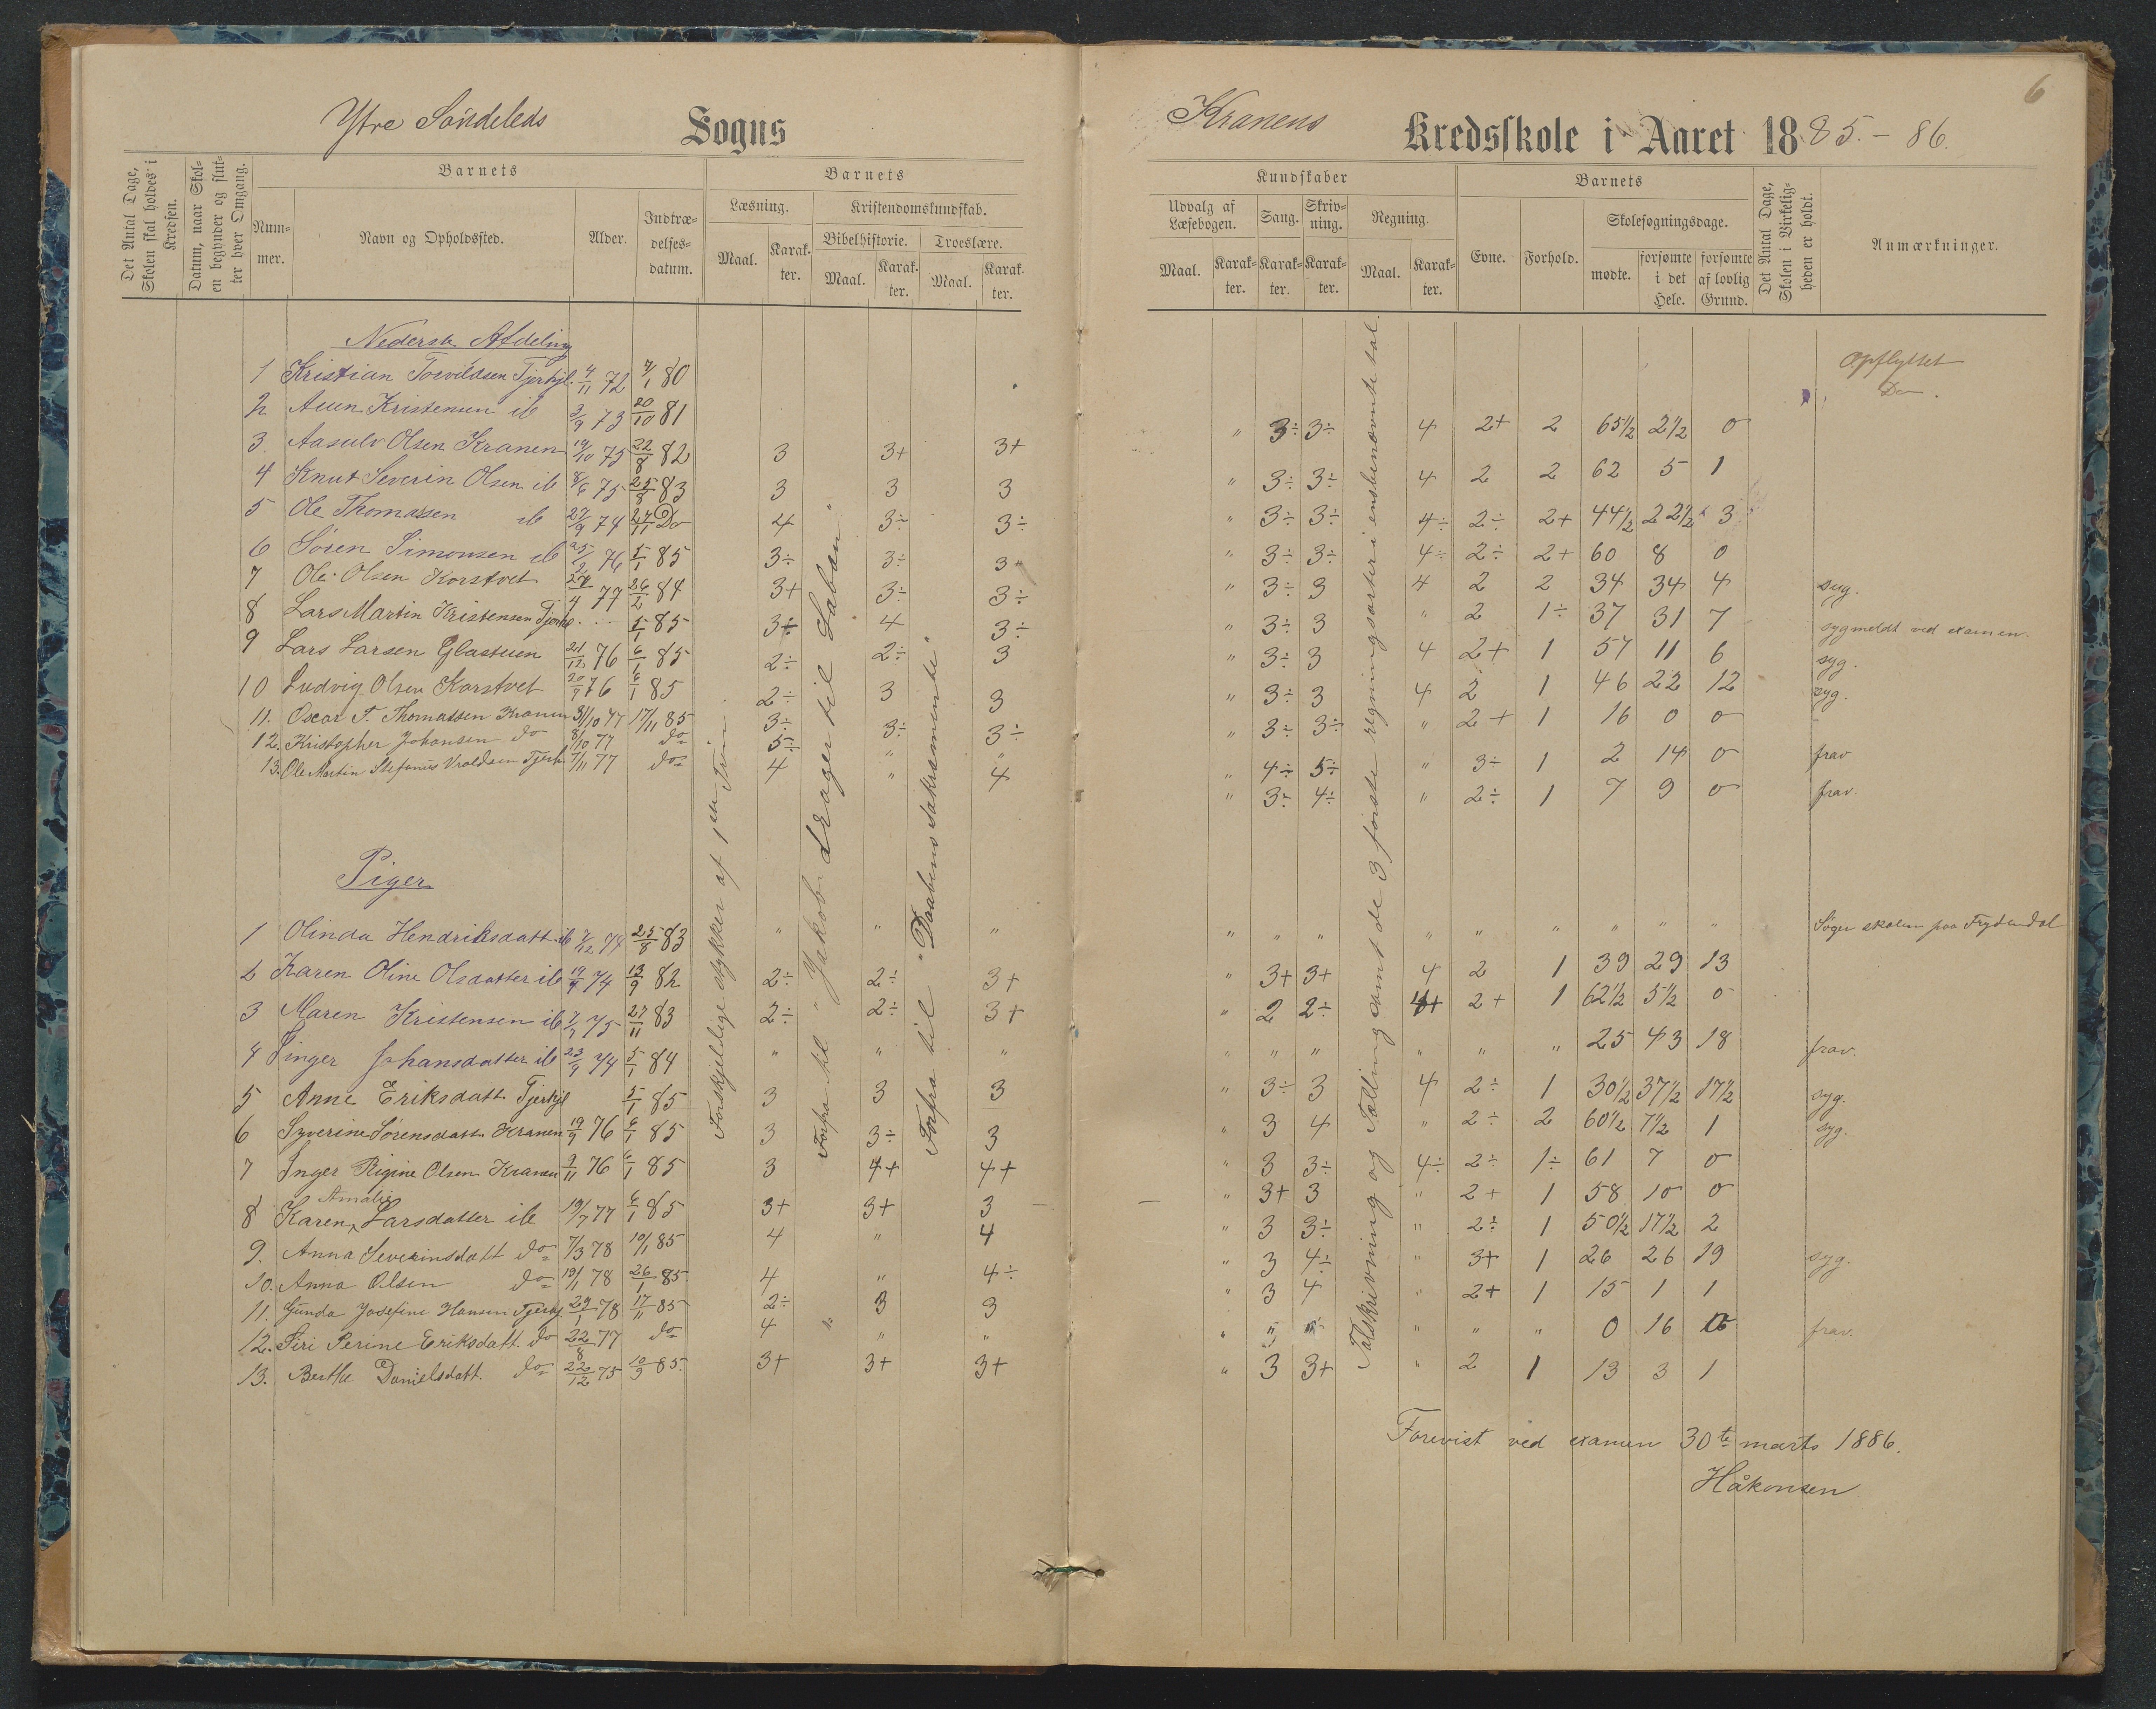 6
Ytre Söndeleds Sogns
Kranens Kredsskole i Aaret 1885.-86.
Det Antal Dage, Skolen skal holdes i Kredsen.
Datum, naar Skolen begynder og slutter hver Omgang.
Barnets
Nummer.
Navn og Opholdssted.
Alder.
Indtrædelsesdatum.
Barnets
Læsning.
Maal.
Karakter.
Kristendomskundskab.
Bibelhistorie.
Maal.
Karakter.
Troeslære.
Maal.
Karakter.
Kundskaber
Udvalg af Læsebogen.
Maal.
Karakter.
Sang.
Karakter.
Skrivning.
Karakter.
Regning.
Maal.
Karakter.
Barnets
Evne.
Forhold.
Skolesøgningsdage.
mødte.
forsømte i det Hele.
forsømte af lovlig Grund.
Det Antal Dage, Skolen i Virkeligheden er holdt.
Anmærkninger.
Nederste Afdeling
1 Kristian Torvildsen Tjerkjl. 4/11 72 7/1 80 Opflyttet
2 Aoen Kristensen ib 3/9 73 20/10 81 Do.
3. Aasulv Olsen Kranen 19/10 75 22/8 82 3 3+ 3+ " 3÷ 3÷ 4 2+ 2 65½ 2½ 0
4 Knut Severin Olsen ib 8/6 75 25/8 83 3 3 3 " 3÷ 3÷ 4 2 2 62 5 1
5 Ole Thomassen ib 27/9 74 27/11 Do 4 3÷ 3÷ " 3÷ 3÷ 4÷ 2÷ 2+ 44½ 22½ 3
6 Sören Simonsen ib 25/2 76 5/1 85 3÷ 3÷ 3" " 3÷ 3÷ 4÷ 2÷ 2+ 60 8 0
7 Ole Olsen Korstvet 24/4 77 26/2 84 3+ 3÷ 3÷ " 3÷ 3 4 2 2 34 34 4 syg.
8 Lars Martin Kristensen Tjerkjl. . . . 5/1 85 3÷ 4 3÷ " 3÷ 3 " 2 1÷ 37 31 7 sygmeldt ved examen.
9 Lars Larsen Glastuen 21/12 76 6/1 85 2÷ 2÷ 3 " 3÷ 3 4 2+ 1 57 11 6 syg.
10 Ludvig Olsen Korstvet 20/9 76 6/1 85 2÷ 3 3 " 3÷ 3 4 2 1 46 22 12 syg.
11. Oscar T. Thomassen Kranen 31/10 77 17/11 85 3÷ 3÷ 3÷ " 3÷ 3÷ " 2+ 1 16 0 0
12. Kristopher Johansen do 8/10 77 do 5÷ " " " 4÷ 5÷ " 3÷ 1 2 14 0 frav
13. Ole Martin Stefanus Vraldsen Tjerk. 7/11 77 do 4 " 4 " 3÷ 4÷ " 2÷ 1 7 9 0 frav.
Piger
1 Olinda Hendriksdatt. ib 7/12 74 25/8 83 " " " " " " " " " " " " Søger skolen paa Frydendal
2 Karen Oline Olsdatter ib 19/4 74 13/9 82 2÷ 2÷ 3+ " 3+ 3+ 4 2 1 39 29 13
3 Maren Kristensen ib 7/7 75 27/11 83 2÷ 2÷ 3+ " 2 2÷ 4+ 2+ 1 62½ 5½ 0
4 Singer Johansdatter ib 23/9 74 5/1 84 " " " " " " " " " 25 43 18 frav.
5 Anne Eriksdatt. Tjerkjl 5/1 85 3 3 3 " 3÷ 3 4 2÷ 1 30½ 37½ 17½ syg.
6 Syverine Sörensdatt. Kranen 19/9 76 6/1 85 3 3÷ 3 " 3 4 " 2÷ 2 60½ 7½ 1 syg.
7 Inger Regine Olsen Kranen 9/11 76 6/1 85 3 4+ 4+ " 3 3÷ 4÷ 2÷ 1÷ 61 7 0
8 Karen Amalie Larsdatter ib 19/7 77 6/1 85 3+ 3+ 3 " 3+ 3 " 2+ 1 58 10 0
9. Anna Severinsdatt do 7/3 78 10/1 85 4 " 4 " 3 3÷ " 2÷ 1 50½ 17½ 2
10. Anna Olsen do 19/1 78 26/1 85 4 " 4÷ " 3 4÷ " 3+ 1 26 26 19 syg.
11. Gunda Josefine Hansen Tjerkj. 29/1 78 17/11 85 2÷ 3 3 " 3 4 " 2+ 1 15 1 1
12. Siri Perine Eriksdatt. do 22/8 77 do 4 " " " " " " " " 0 16 16 frav.
13. Berthe Danielsdatt. do 22/12 75 10/3 85. 3+ 3+ 3+ " 3 3+ " 2 1 13 3 1
Forskjellige stykker af 1ste Trin.
Forfra til "Jakob drager til Laban"
Forfra til "Daabens Sakramente"
Talskrivning og Tælling samt de 3 første regningsarter i ensbenævnte tal.
Forevist ved examen 30te marts 1886.
Håkonsen